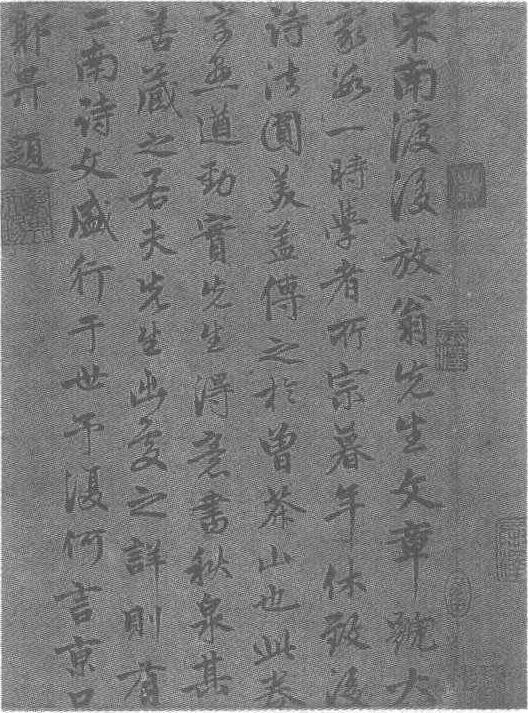 宋南渡後放翁先生文章號大
家為一時學者所宗暮年休致後
詩法圓美蓋傳之於曾茶山也此卷
字畫遒勁實先生得意書秋泉其
善藏之若夫先生出處之詳則有
二南詩文盛行于世予復何言京口
郭畀題